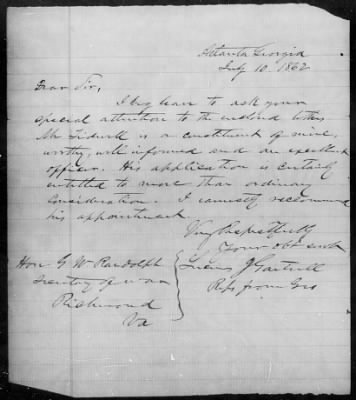 Atlanta Georgia
July 10. 1862
Dear Sir,
I beg leave to ask your
special attention to the enclosed letter
Mr Tidwell is a constituent of mine,
worthy, well informed and an excellent
officer. His application is certainly
entitled to more than ordinary
consideration. I earnestly recommend
his appointment.
Very Respectfully
Your obt servt
Lucius J Gartrell
Reps from Geo
Hon G W Randolph
Secretary of war
Richmond
Va